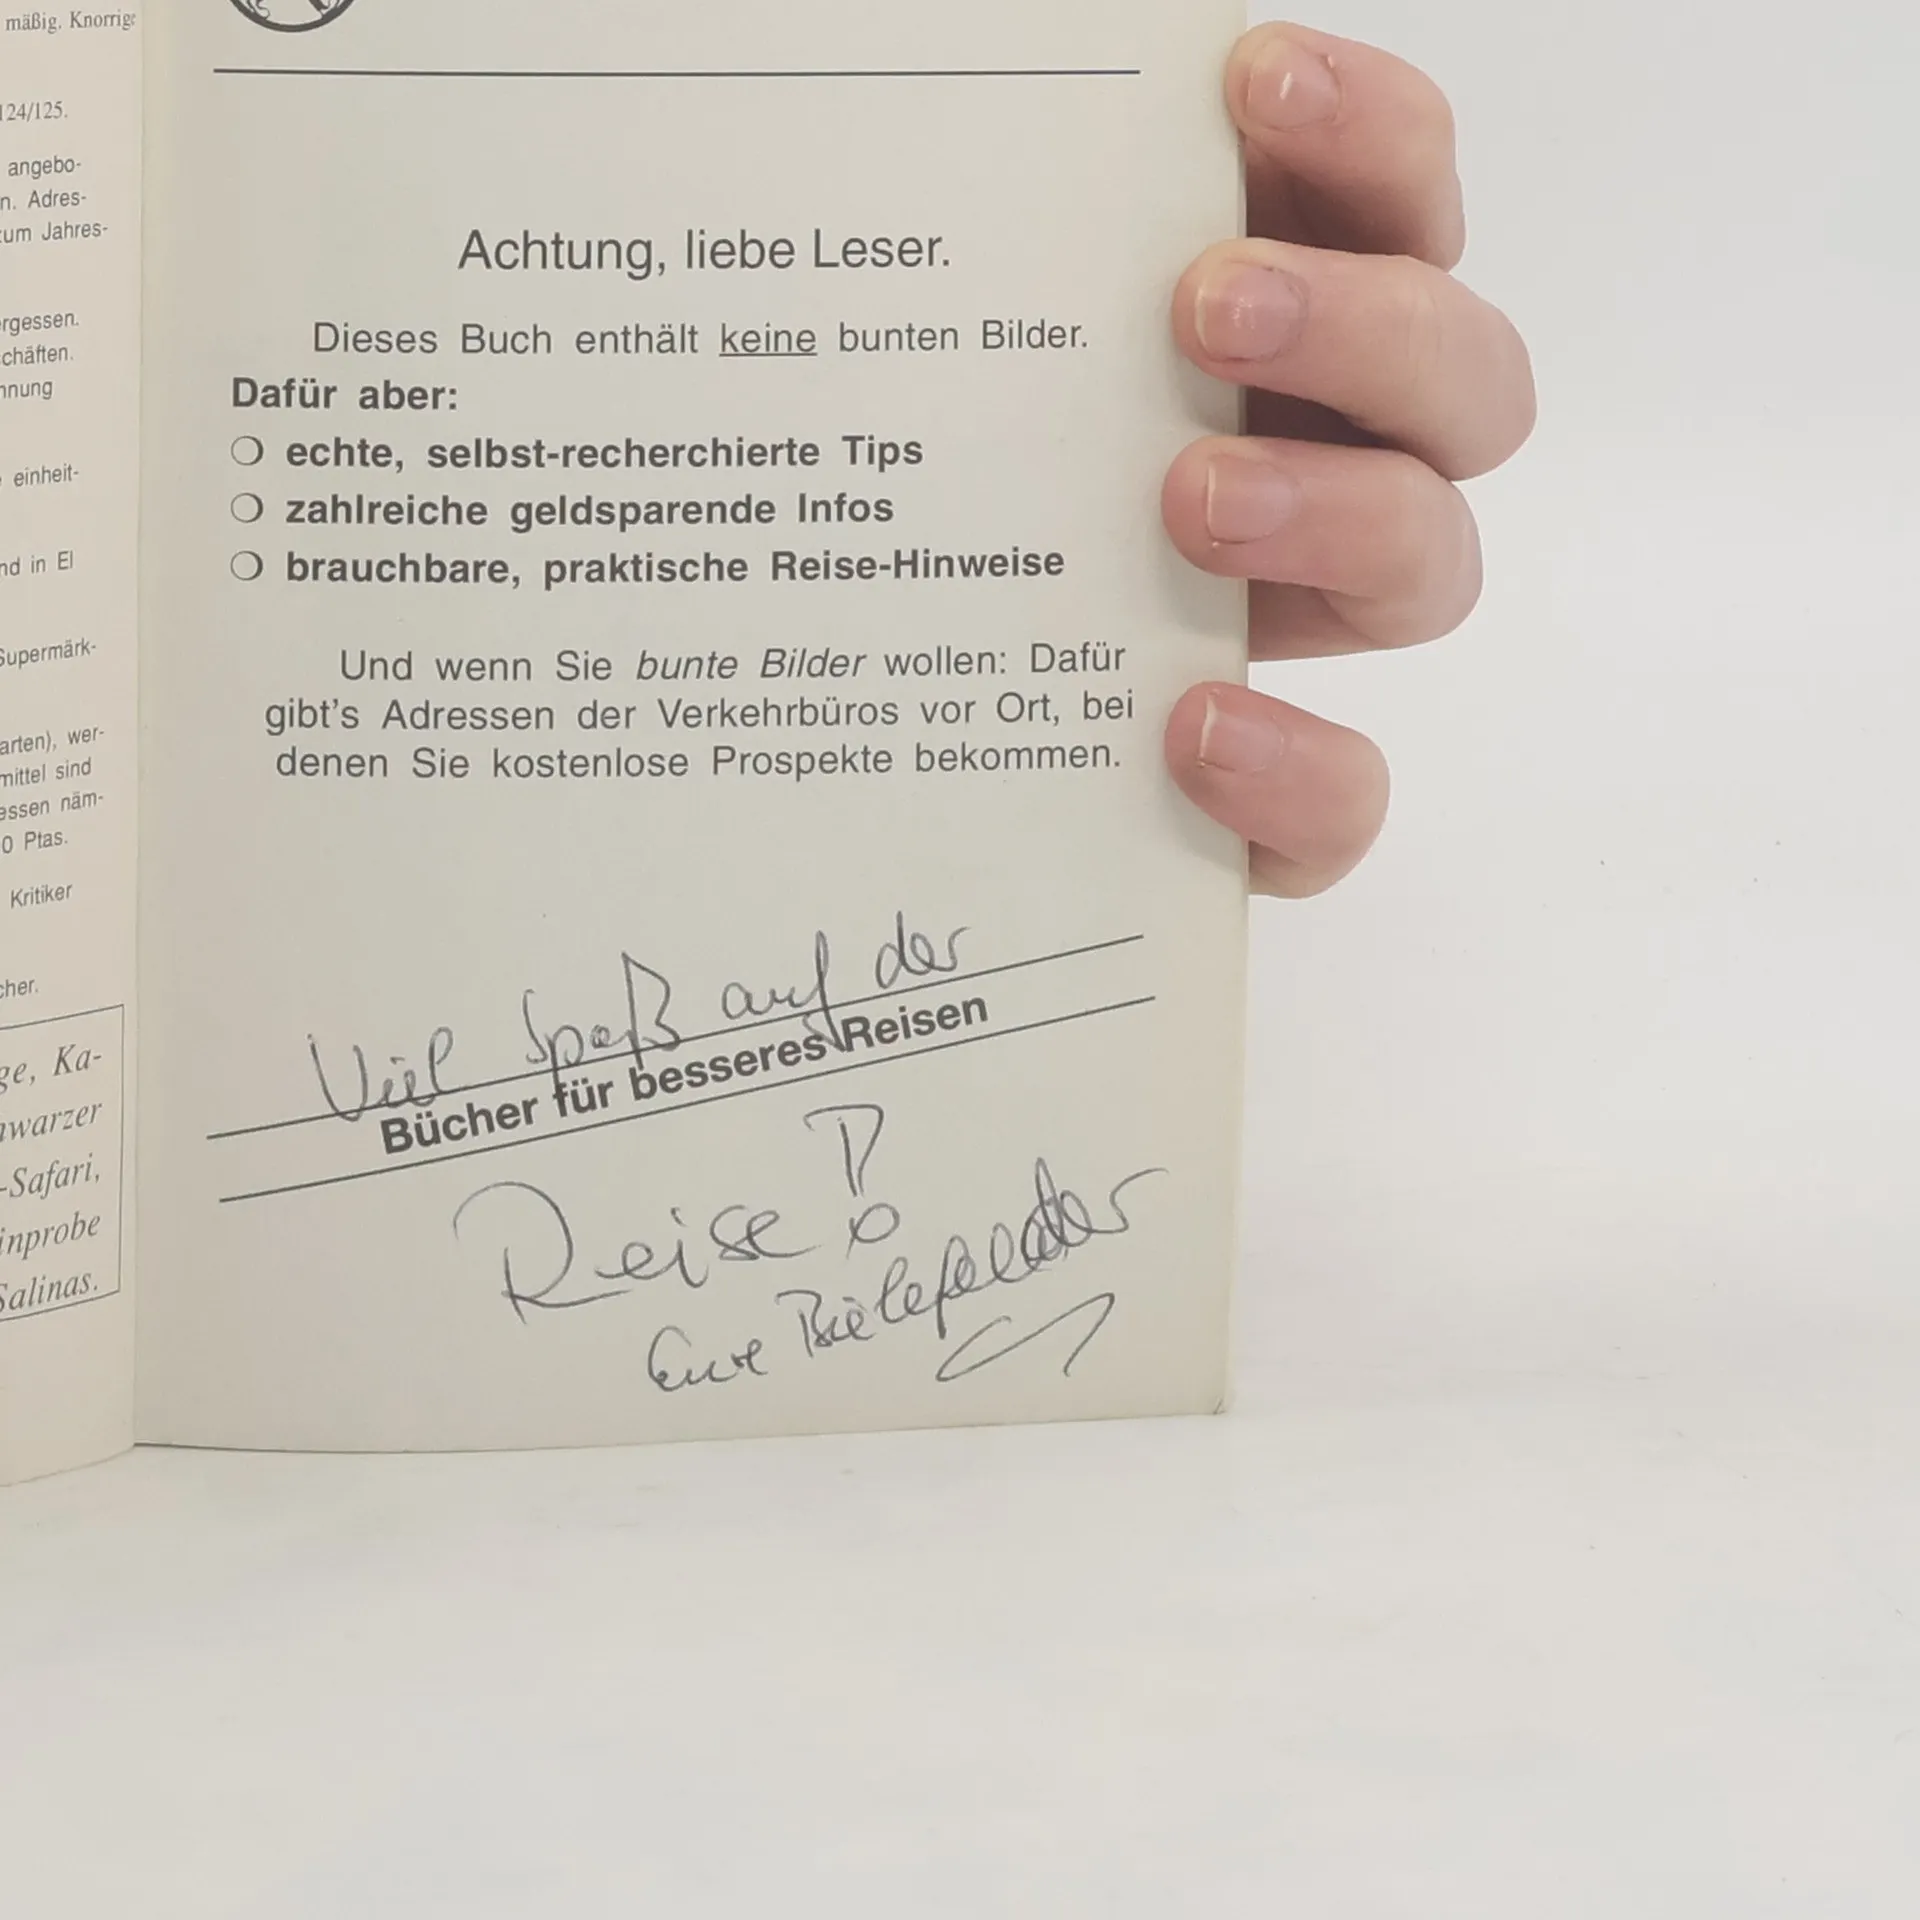 mäßig. Knorrige
124/125.
angebo-
n. Adres-
um Jahres-
rgessen.
chäften.
nnung
einheit-
nd in El
Supermärk-
arten), wer-
mittel sind
essen näm-
0 Ptas.
Kritiker
cher.
ge, Ka-
hwarzer
-Safari,
inprobe
Salinas.
Achtung, liebe Leser.
Dieses Buch enthält keine bunten Bilder.
Dafür aber:
❍ echte, selbst-recherchierte Tips
❍ zahlreiche geldsparende Infos
❍ brauchbare, praktische Reise-Hinweise
Und wenn Sie bunte Bilder wollen: Dafür
gibt's Adressen der Verkehrbüros vor Ort, bei
denen Sie kostenlose Prospekte bekommen.
Viel Spaß auf der
Bücher für besseres Reisen
Reise!
Eure Bielefelder